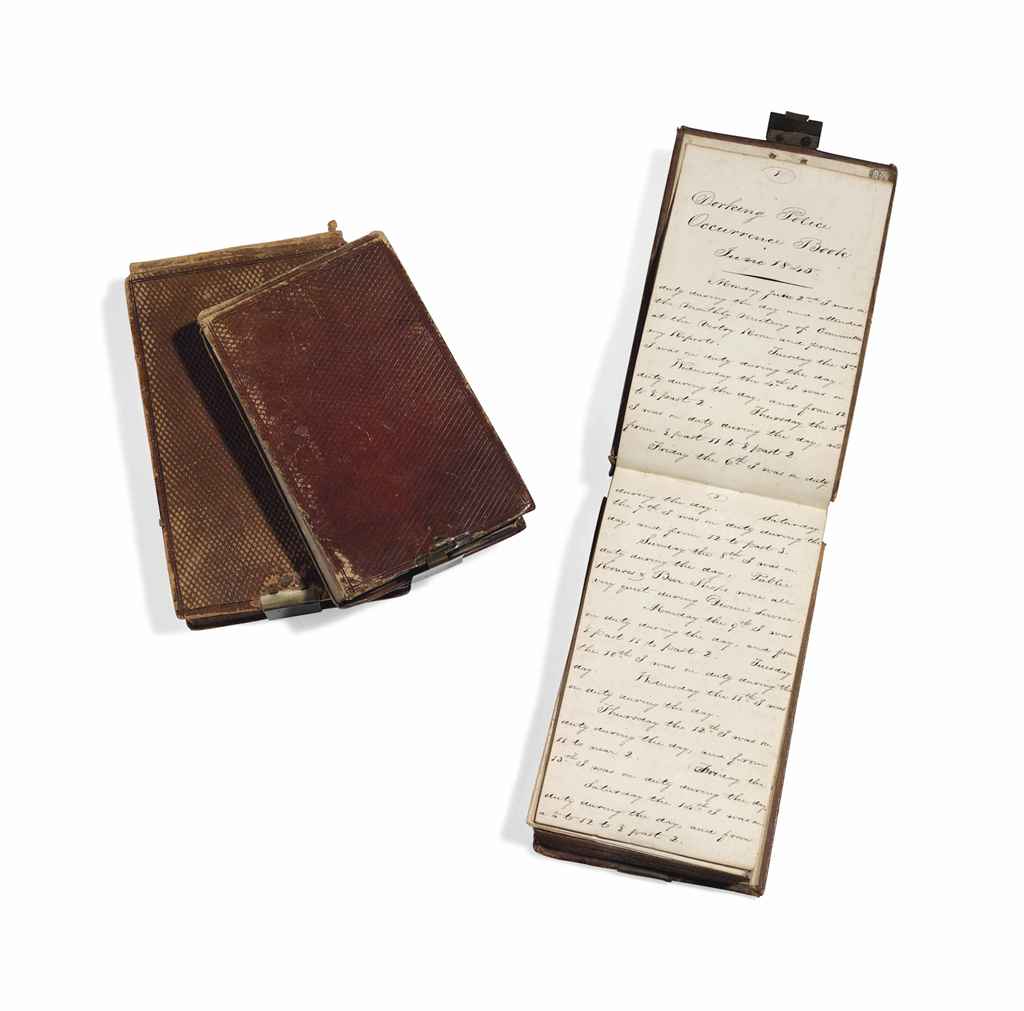 1
Dorking Police
Occurrence Book
June 1845.
Monday June 2nd I was on
duty during the day and attended
the Monthly Meeting of Committee
at the Vestry Room and produced
my Reports. Tuesday the 3rd
I was on duty during the day.
Wednesday the 4th I was on
duty during the day, and from 12
to ½ past 2. Thursday the 5th
I was on duty during the day, and
from ½ past 11 to ½ past 2.
Friday the 6th I was on duty
2
during the day. Saturday
the 7th I was on duty during the
day, and from 12 to past 3.
Sunday the 8th I was on
duty during the day; Public
Houses & Beer Shops were all
very quiet during Divine Service
Monday the 9th I was
on duty during the day, and from
½ past 11 to ½ past 2. Tuesday
the 10th I was on duty during the
day. Wednesday the 11th I was
on duty during the day.
Thursday the 12th I was on
duty during the day, and from
11 to near 2. Friday the
13th I was on duty during the day
Saturday the 14th I was on
duty during the day, and from
¼ to 12 to ½ past 2.